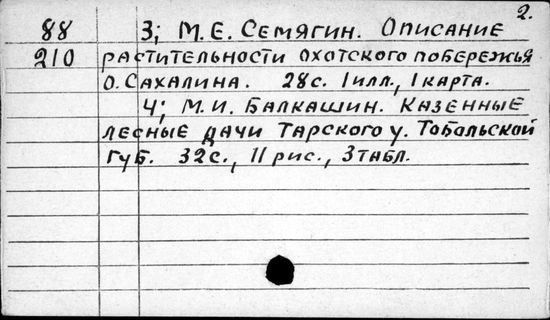 2.
88 3; М.Е. Семягин. Описание
210 растительности охотского побережья
о. Сахалина. 28с. 1илл., 1карта.
4; М.И. Балкашин. Казенные
лесные дачи Тарского у. Тобальской
губ. 32с., 11рис., 3табл.